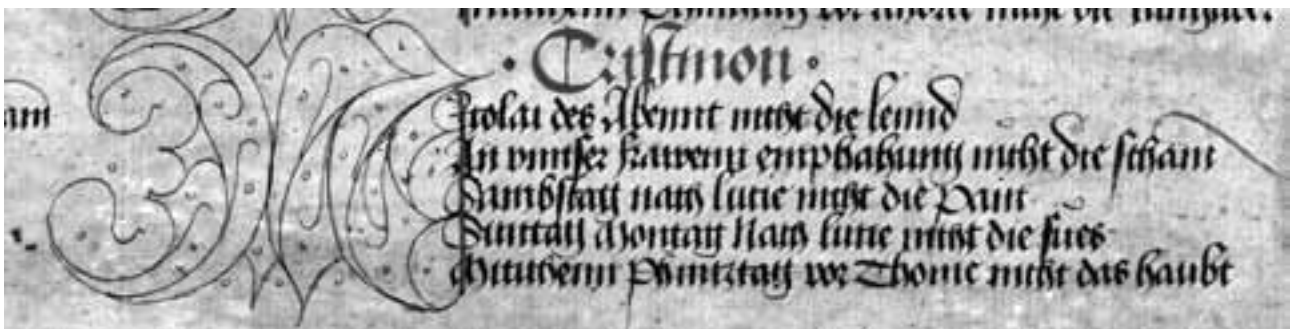 · Cristmon ·
Nicolai des Abennt nicht die lennd
In unnser frawenn emphahung nicht die scham
Sambstag nach lucie nicht die Pain
Suntag Montag Nach lucie nicht die fües
Mittichenn Phintztag vor Thome nicht das haubt